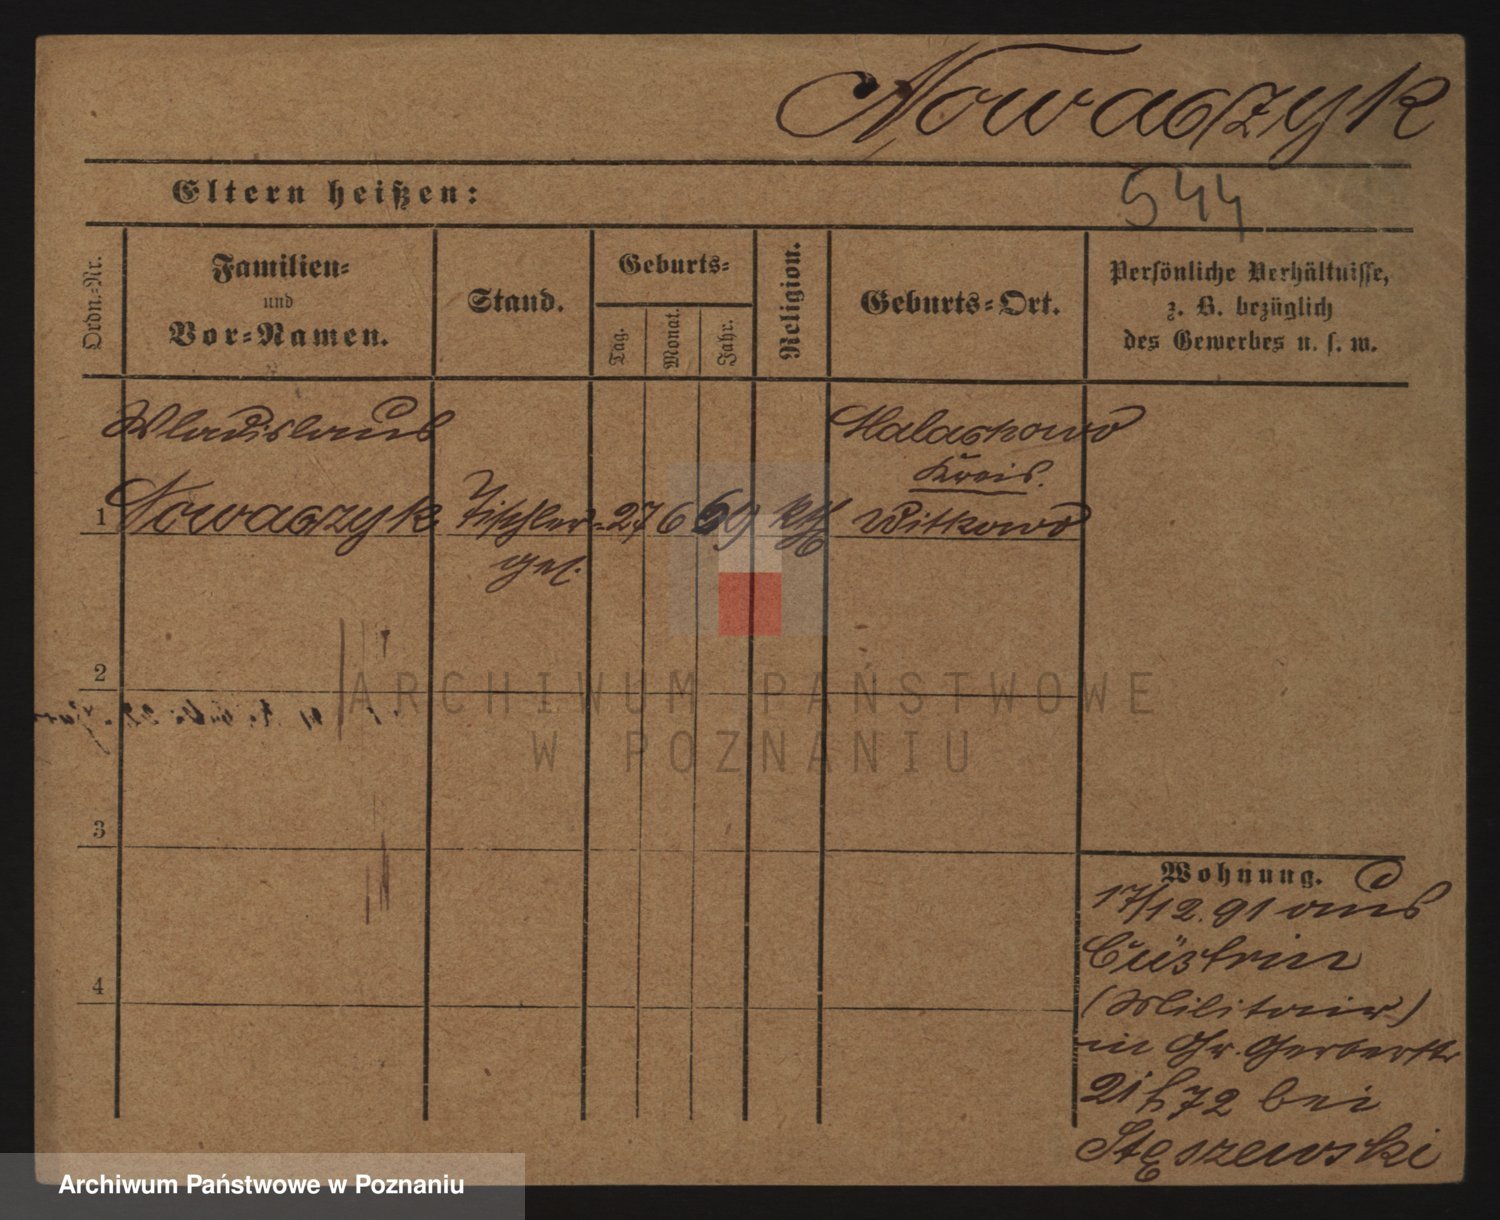 Nowaczyk
Eltern heißen:
544
Ordn.-Nr.
Familien-
und
Vor-Namen.
Stand.
Geburts-
Tag.
Monat.
Jahr.
Religion.
Geburts-Ort.
Persönliche Verhältnisse,
z. B. bezüglich
des Gewerbes u. s. w.
Wladislaus
Malachowo
Kreis.
1 Nowaczyk Tischler- 27 6 69 kth Witkowo
ges.
2
ARCHIWUM PAŃSTWOWE
W POZNANIU
3
Wohnung.
17/12.91 aus
Cüstrin
(Militair)
4
in Gr. Gerberstr
21 72 bei
Stęszewski
Archiwum Państwowe w Poznaniu